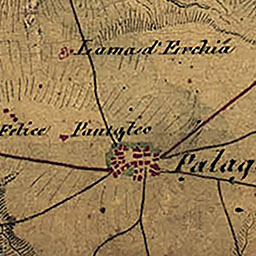 Lama d'Erchia
Felice Pantaleo
Palag